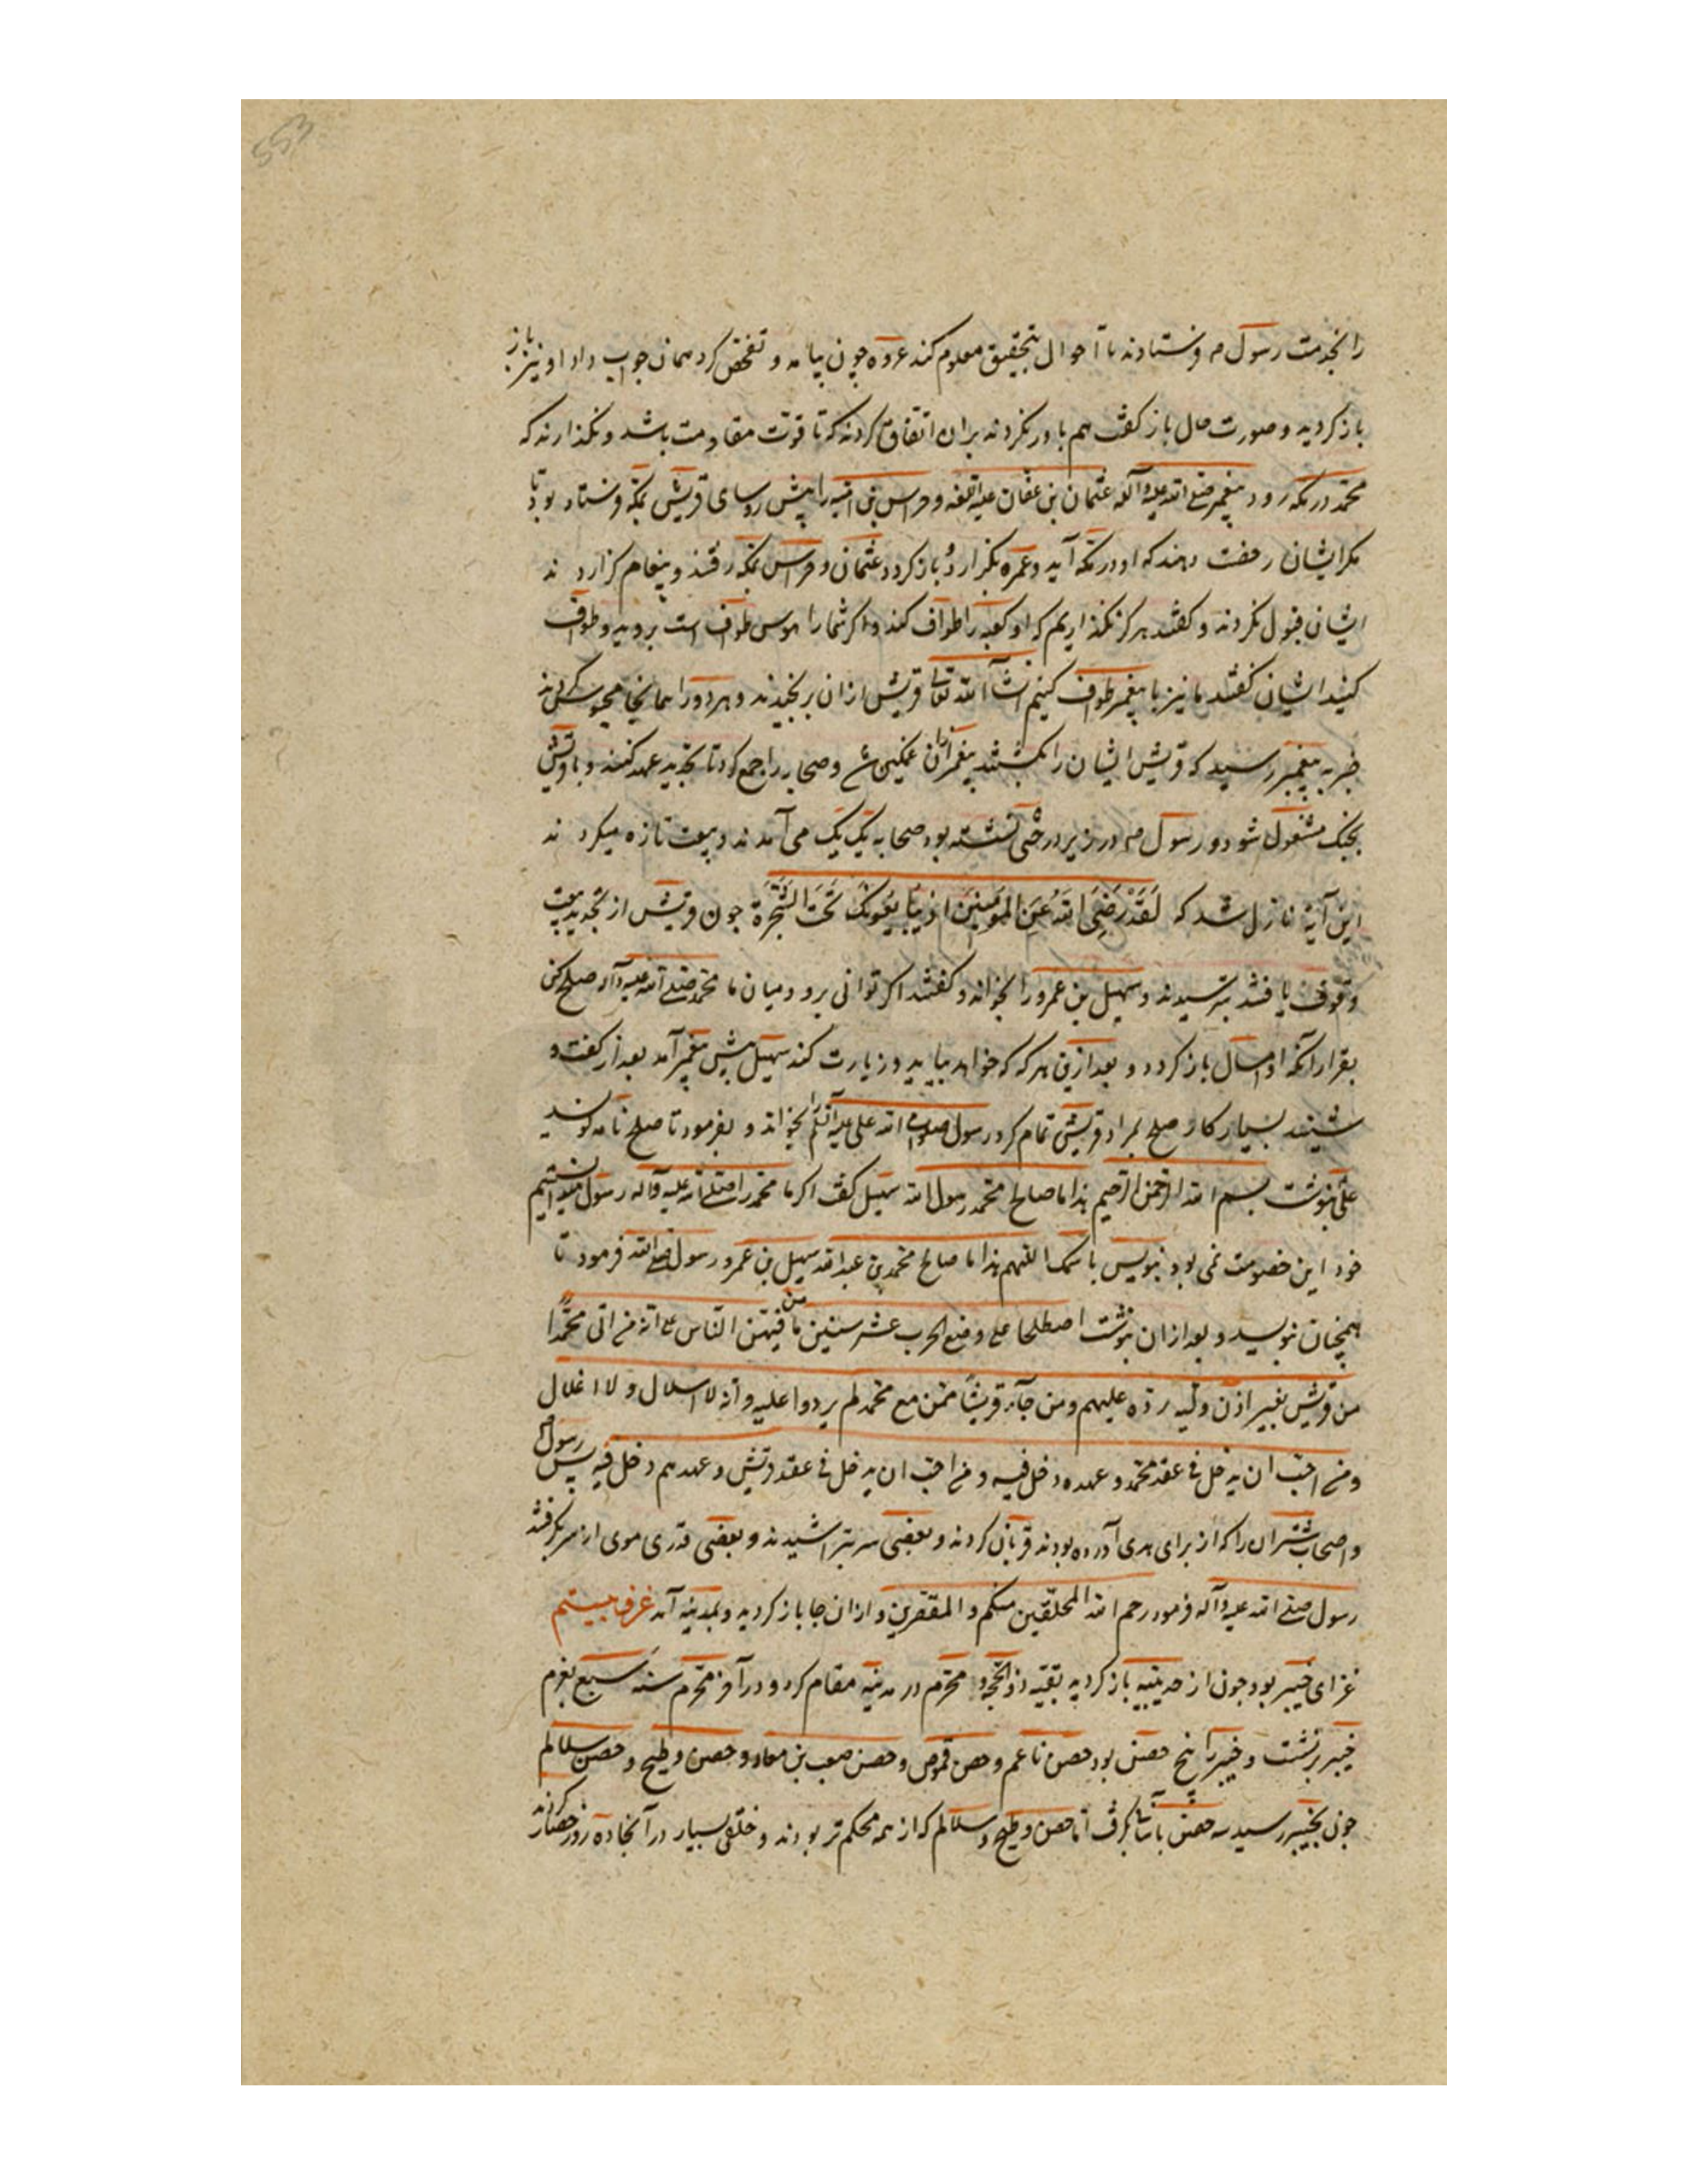 553
را بخدمت رسول م فرستادند تا احوال بتحقیق معلوم کند عروه چون بیامد و تفحص کرد همان جواب داد او نیز باز
باز کردید و صورت حال باز کفت هم باور نکردند بران اتفاق کردند که تا قوت مقاومت باشد و نکذارند که
محمد در مکه رود پیغمبر صلی الله علیه و آله عثمان بن عفان و خراس بن امیه را پیش روسای قریش بمکه فرستاد بود تا
مکر ایشان رخصت دهند که او در مکه آید و عمره بکزارد و باز کردد عثمان و خراس بمکه رفتند و پیغام کزاردند
ایشان قبول نکردند و کفتند هرکز نکذاریم که او کعبه را طواف کند و اکر شما را هوس طواف است بروید و طواف
کنید ایشان کفتند ما نیز با پیغمبر طواف کنیم انشآ الله تعالی قریش ازان برنجیدند و هر دو را همانجا محبوس کردند
خبر به پیغمبر رسید که قریش ایشان را بکشتند پیغمبر ازان غمکین شد و صحابه را جمع کرد تا تجدید عهد کنند و با قریش
بجنک مشغول شود و رسول م در زیر درختی نشسته بود صحابه یک یک می آمدند و بیعت تازه میکردند
این آیة نازل شد که لَقَدْ رَضِیَ اللهُ عَنِ المؤمِنِینَ اذ یُبَایِعُونَکَ تَحْتَ الشَّجَرَة چون قریش از تجدید بیعت
وقوف یافتند بترسیدند و سهیل بن عمرو را بخواندند و کفتند اکر توانی برو و میان ما و محمد صلی الله علیه و آله صلح کن
بقرار آنکه امسال باز کردد و بعد ازین هرکه که خواهد بیاید و زیارت کند سهیل پیش پیغمبر آمد بعد از کفت و
شنید بسیار کار صلح بمراد قریش تمام کرد رسول صلوات الله علیه علی را بخواند و بفرمود تا صلح نامه نویسد
علی بنوشت بسم الله الرحمن الرحیم هذا ما صالح محمد رسول الله سهیل کفت اکر ما محمد را صلی الله علیه و آله رسول میدانستیم
خود این خصومت نمی بود بنویس باسمک اللهم هذا ما صالح محمد بن عبدالله سهیل بن عمرو رسول صلی الله فرمود تا
همچنان بنویسد و بعد ازان بنوشت اصطلحا علی وضع الحرب عشر سنین یأمن فیهن الناس علی انه من اتی محمدًا
من قریش بغیر اذن ولیه رده علیهم و من جآء قریشًا ممن مع محمد لم یردوا علیه و انه لا اسلال و لا اغلال
و من احب ان یدخل فی عقد محمد و عهده دخل فیه و من احب ان یدخل فی عقد قریش و عهدهم دخل فیه پس رسول
و اصحاب شتران را که از برای هدی آورده بودند قربان کردند و بعضی سر بتراشیدند و بعضی قدری موی از سر بکرفتند
رسول صلی الله علیه و آله فرمود رحم الله المحلقین منکم و المقصرین و ازان جا باز کردید و بمدینه آمد غزو بیستم
غزای خیبر بود چون از حدیبیه باز کردید بقیه ذو الحجه و محرم در مدینه مقام کرد و در آخر محرم سنه سبع بعزم
خیبر برنشست و خیبر را پنج حصن بود حصن ناعم و حصن قموص و حصن صعب بن معاد و حصن وطیح و حصن سلالم
چون بخیبر رسید سه حصن بآسانی بکرفت اما حصن وطیح و سلالم که از همه محکم تر بودند و خلقی بسیار در آنجا ده روز حصار کردند